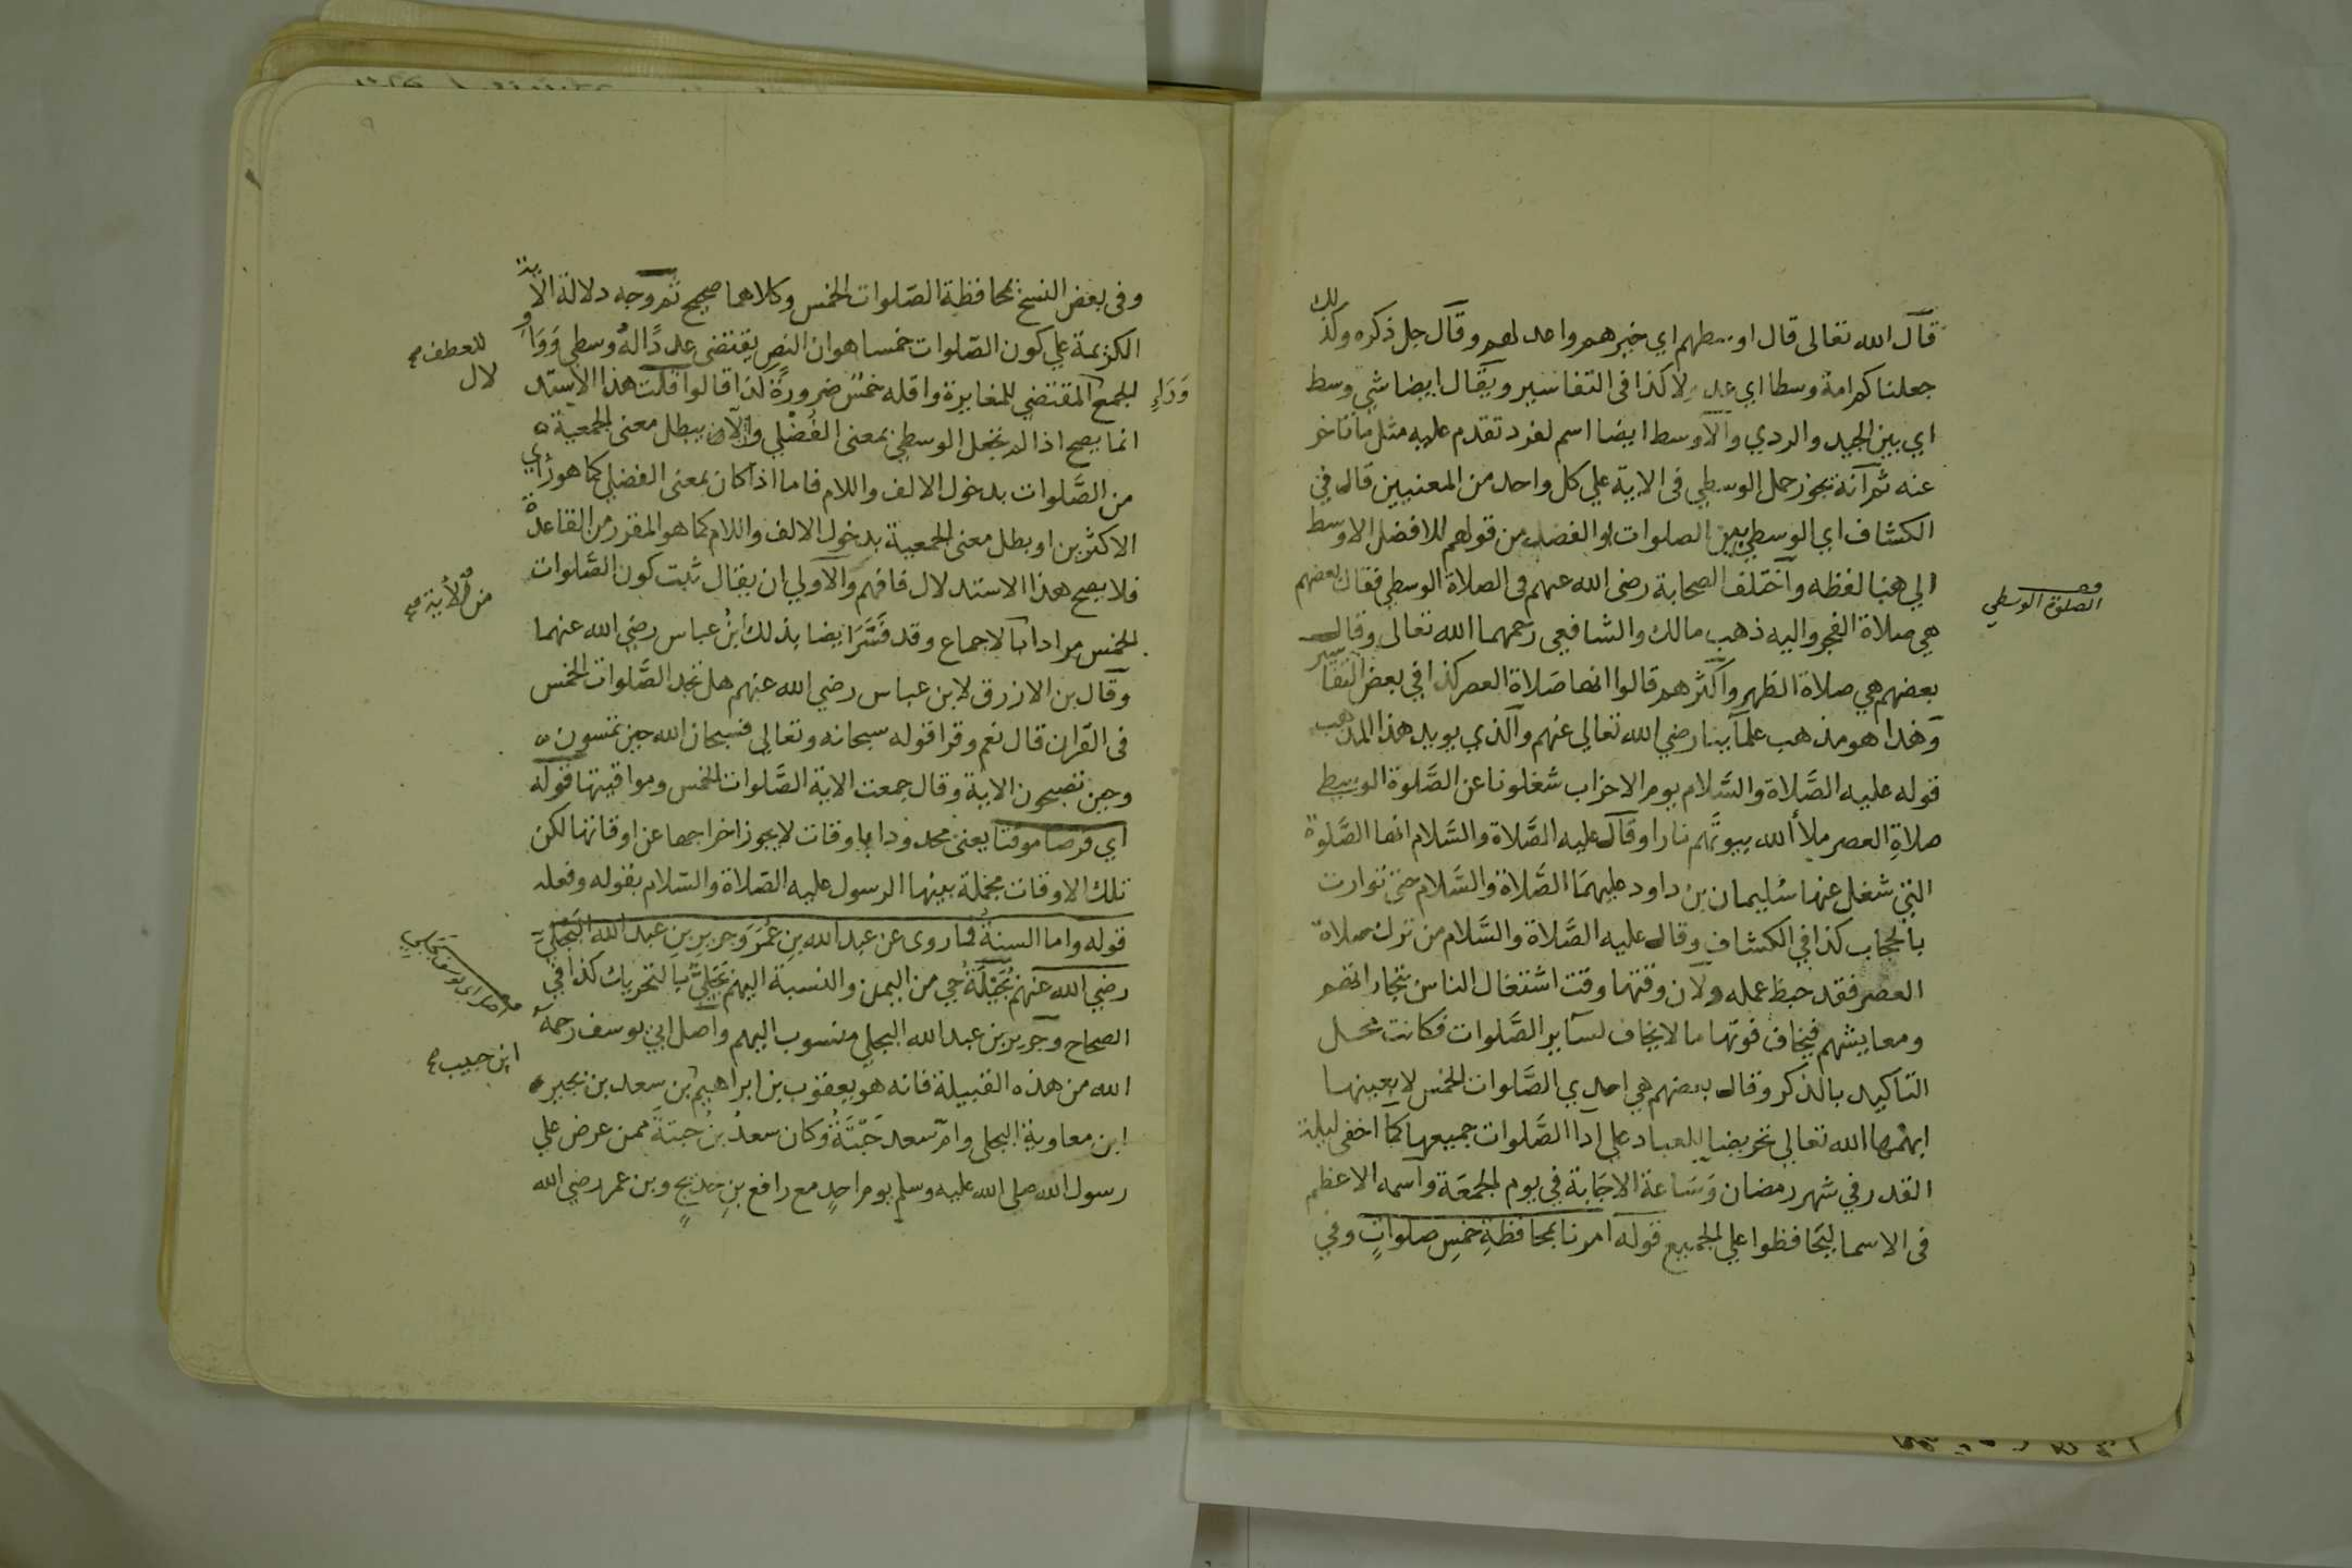 قال الله تعالى قال اوسطهم اي خيرهم واعدلهم وقال جل ذكره وكذلك
جعلناكم امة وسطا اي عدلا كذا فى التفاسير ويقال ايضا شي وسط
اي بين الجيد والردي والاوسط ايضا اسم لفرد تقدم عليه مثل ما تاخر
عنه ثم انه يجوز حمل الوسطي فى الاية علي كل واحد من المعنيين قال في
الكشاف اي الوسطي بين الصلوات او الفضلى من قولهم للافضل الاوسط
الي هنا لفظه واختلف الصحابة رضى الله عنهم فى الصلاة الوسطي فقال بعضهم
الصلوة الوسطي
هي صلاة الفجر واليه ذهب مالك والشافعي رحمهما الله تعالى وقال
بعضهم هي صلاة الظهر واكثرهم قالوا انها صلاة العصر كذا في بعض التفاسير
وهذا هو مذهب علمآينا رضي الله تعالى عنهم والذي يويد هذا المذهب
قوله عليه الصَّلاة والسَّلام يوم الاحزاب شغلونا عن الصَّلوة الوسطي
صلاةِ العصر ملأ الله بيوتهم نارا وقال عليه الصَّلاة والسَّلام انها الصَّلوة
التي شغل عنها سُليمان بن داود عليهمَا الصَّلاة والسَّلام حتى توارت
بالحجاب كذا في الكشاف وقال عليه الصَّلاة والسَّلام من ترك صلاة
العصر فقد حبط عمله ولان وقتها وقت اشتغال الناس بتجاراتهم
ومعايشهم فيخاف فوتها ما لا يخاف لسآير الصَّلوات فكانت محل
التاكيد بالذكر وقال بعضهم هي احدي الصَّلوات الخمس لا بعينها
ابهمها الله تعالى تحريضا للعباد علي ادا الصَّلوات جميعها كما اخفى ليلة
القدر في شهر رمضان وَسَاعة الاجَابة في يوم الجمعَة واسمه الاعظم
فى الاسما ليَحافظوا علي الجميع قوله امرنا بمحافظةِ خمسِ صلواتٍ وفي
وفى بعض النسخ بمحافظة الصّلوات الخمس وكلاهما صحيح ثم وجه دلالة الاية
الكريمة علي كون الصّلوات خمسا هو ان النص يقتضى عددًا لهُ وسطي وَوَاو
للعطف صح
وَرَاءِ الجمع المقتضي للمغايرة واقله خمسٌ ضرورة كذا قالوا قلت هذا الاستد
لال
انما يصح اذا لم نجعل الوسطي بمعنى الفُضْلي والآن يبطل معنى الجمعية
من الصَّلوات بدخول الالف واللام فاما اذا كان بمعنى الفضلي كما هو راي
الاكثرين او بطل معنى الجمعية بدخول الالف واللام كما هو المقرر من القاعدة
فلا يصح هذا الاستدلال فافهم والاولي ان يقال ثبت كون الصَّلوات
من الاية صح
الخمس مرادا بالاجماع وقد فَسَّرَ ايضا بذلك ابنُ عباس رضي الله عنهما
وقال بن الازرق لابن عباس رضي الله عنهم هل نجد الصَّلوات الخمس
فى القران قال نعم وقرا قوله سبحانه وتعالي فسبحان الله حين تمسون
وحين تصبحون الاية وقال جمعت الاية الصَّلوات الخمس ومواقيتها قوله
اي فرضا موقتا يعنى محدودا باوقات لا يجوز اخراجها عن اوقاتها لكن
تلك الاوقات مجملة بينها الرسول عليه الصّلاة والسّلام بقوله وفعله
قوله واما السنةُ فما روى عن عبد الله بنِ عُمَرَ وَجرير بنِ عبد الله البَجَليّ
رضي الله عنهم بُجَيْلَةُ حي من اليمن والنسبة اليهم بَجَليٌّ بالتحريك كذا في
الصحاح وجرير بن عبد الله البجلي منسوب اليهم واصل ابي يوسف رحمه
الله من هذه القبيلة فانه هو يعقوب بن ابراهيم بن سعد بن بجير
ابن حبيب صح
ابن معاوية البجلى وامّ سعد حَبْتَةُ وكان سعدُ بنُ حبتةَ ممن عرض علي
رسول الله صلى الله عليه وسلم يوم احدٍ مع رافع بنِ خديجٍ وبن عمر رضي الله